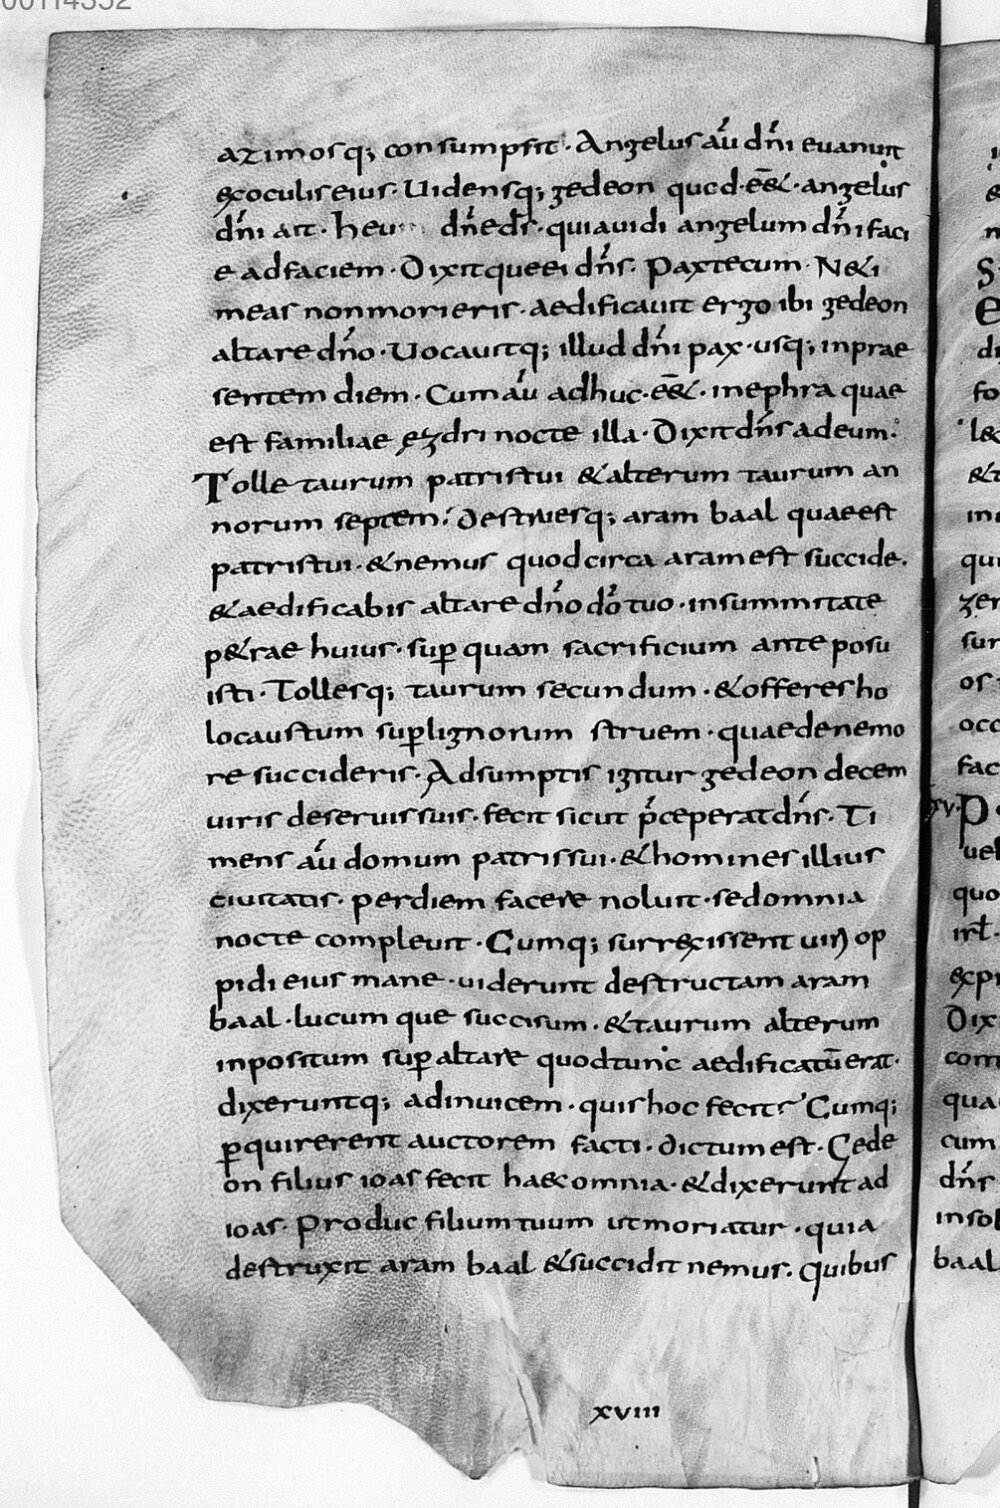 00114352
azimosq; consumpsit · Angelus aū dn̄i evanuit
ex oculis eius · Uidensq; gedeon quod · ēē& · angelus
dn̄i ait · heu dn̄e ds̄ · quia uidi angelum dn̄i faci
e ad faciem · Dixitque ei dn̄s · Pax tecum · Ne ti
meas non morieris · aedificauit ergo ibi gedeon
altare dn̄o · Uocauitq; illud dn̄i pax · usq; in prae
sentem diem · Cum aū adhuc · ēē& · in ephra quae
est familiae ezdri nocte illa · Dixit dn̄s ad eum:
Tolle taurum patris tui & alterum taurum an
norum septem: destruesq; aram baal quae est
patris tui · & nemus quod circa aram est succide.
& aedificabis altare dn̄o dō tuo · in summitate
p&rae huius · sup quam sacrificium ante posu
isti · Tollesq; taurum secundum · & offeres ho
locaustum sup lignorum struem · quae de nemo
re succideris · Adsumptis igitur gedeon decem
uiris de seruis suis · fecit sicut p̄ceperat dn̄s · Ti
mens aū domum patris sui · & homines illius
ciuitatis · per diem facere noluit · sed omnia
nocte compleuit · Cumq; surrexissent uiri op
pidi eius mane · uiderunt destructam aram
baal · lucum que succisum · & taurum alterum
inpositum sup altare quod tunc aedificatū erat ·
dixeruntq; ad inuicem · quis hoc fecit? Cumq;
p̱quirerent auctorem facti · dictum est · Gede
on filius ioas fecit haec omnia · & dixerunt ad
ioas · Produc filium tuum ut moriatur · quia
destruxit aram baal & succidit nemus. Quibus
xviii